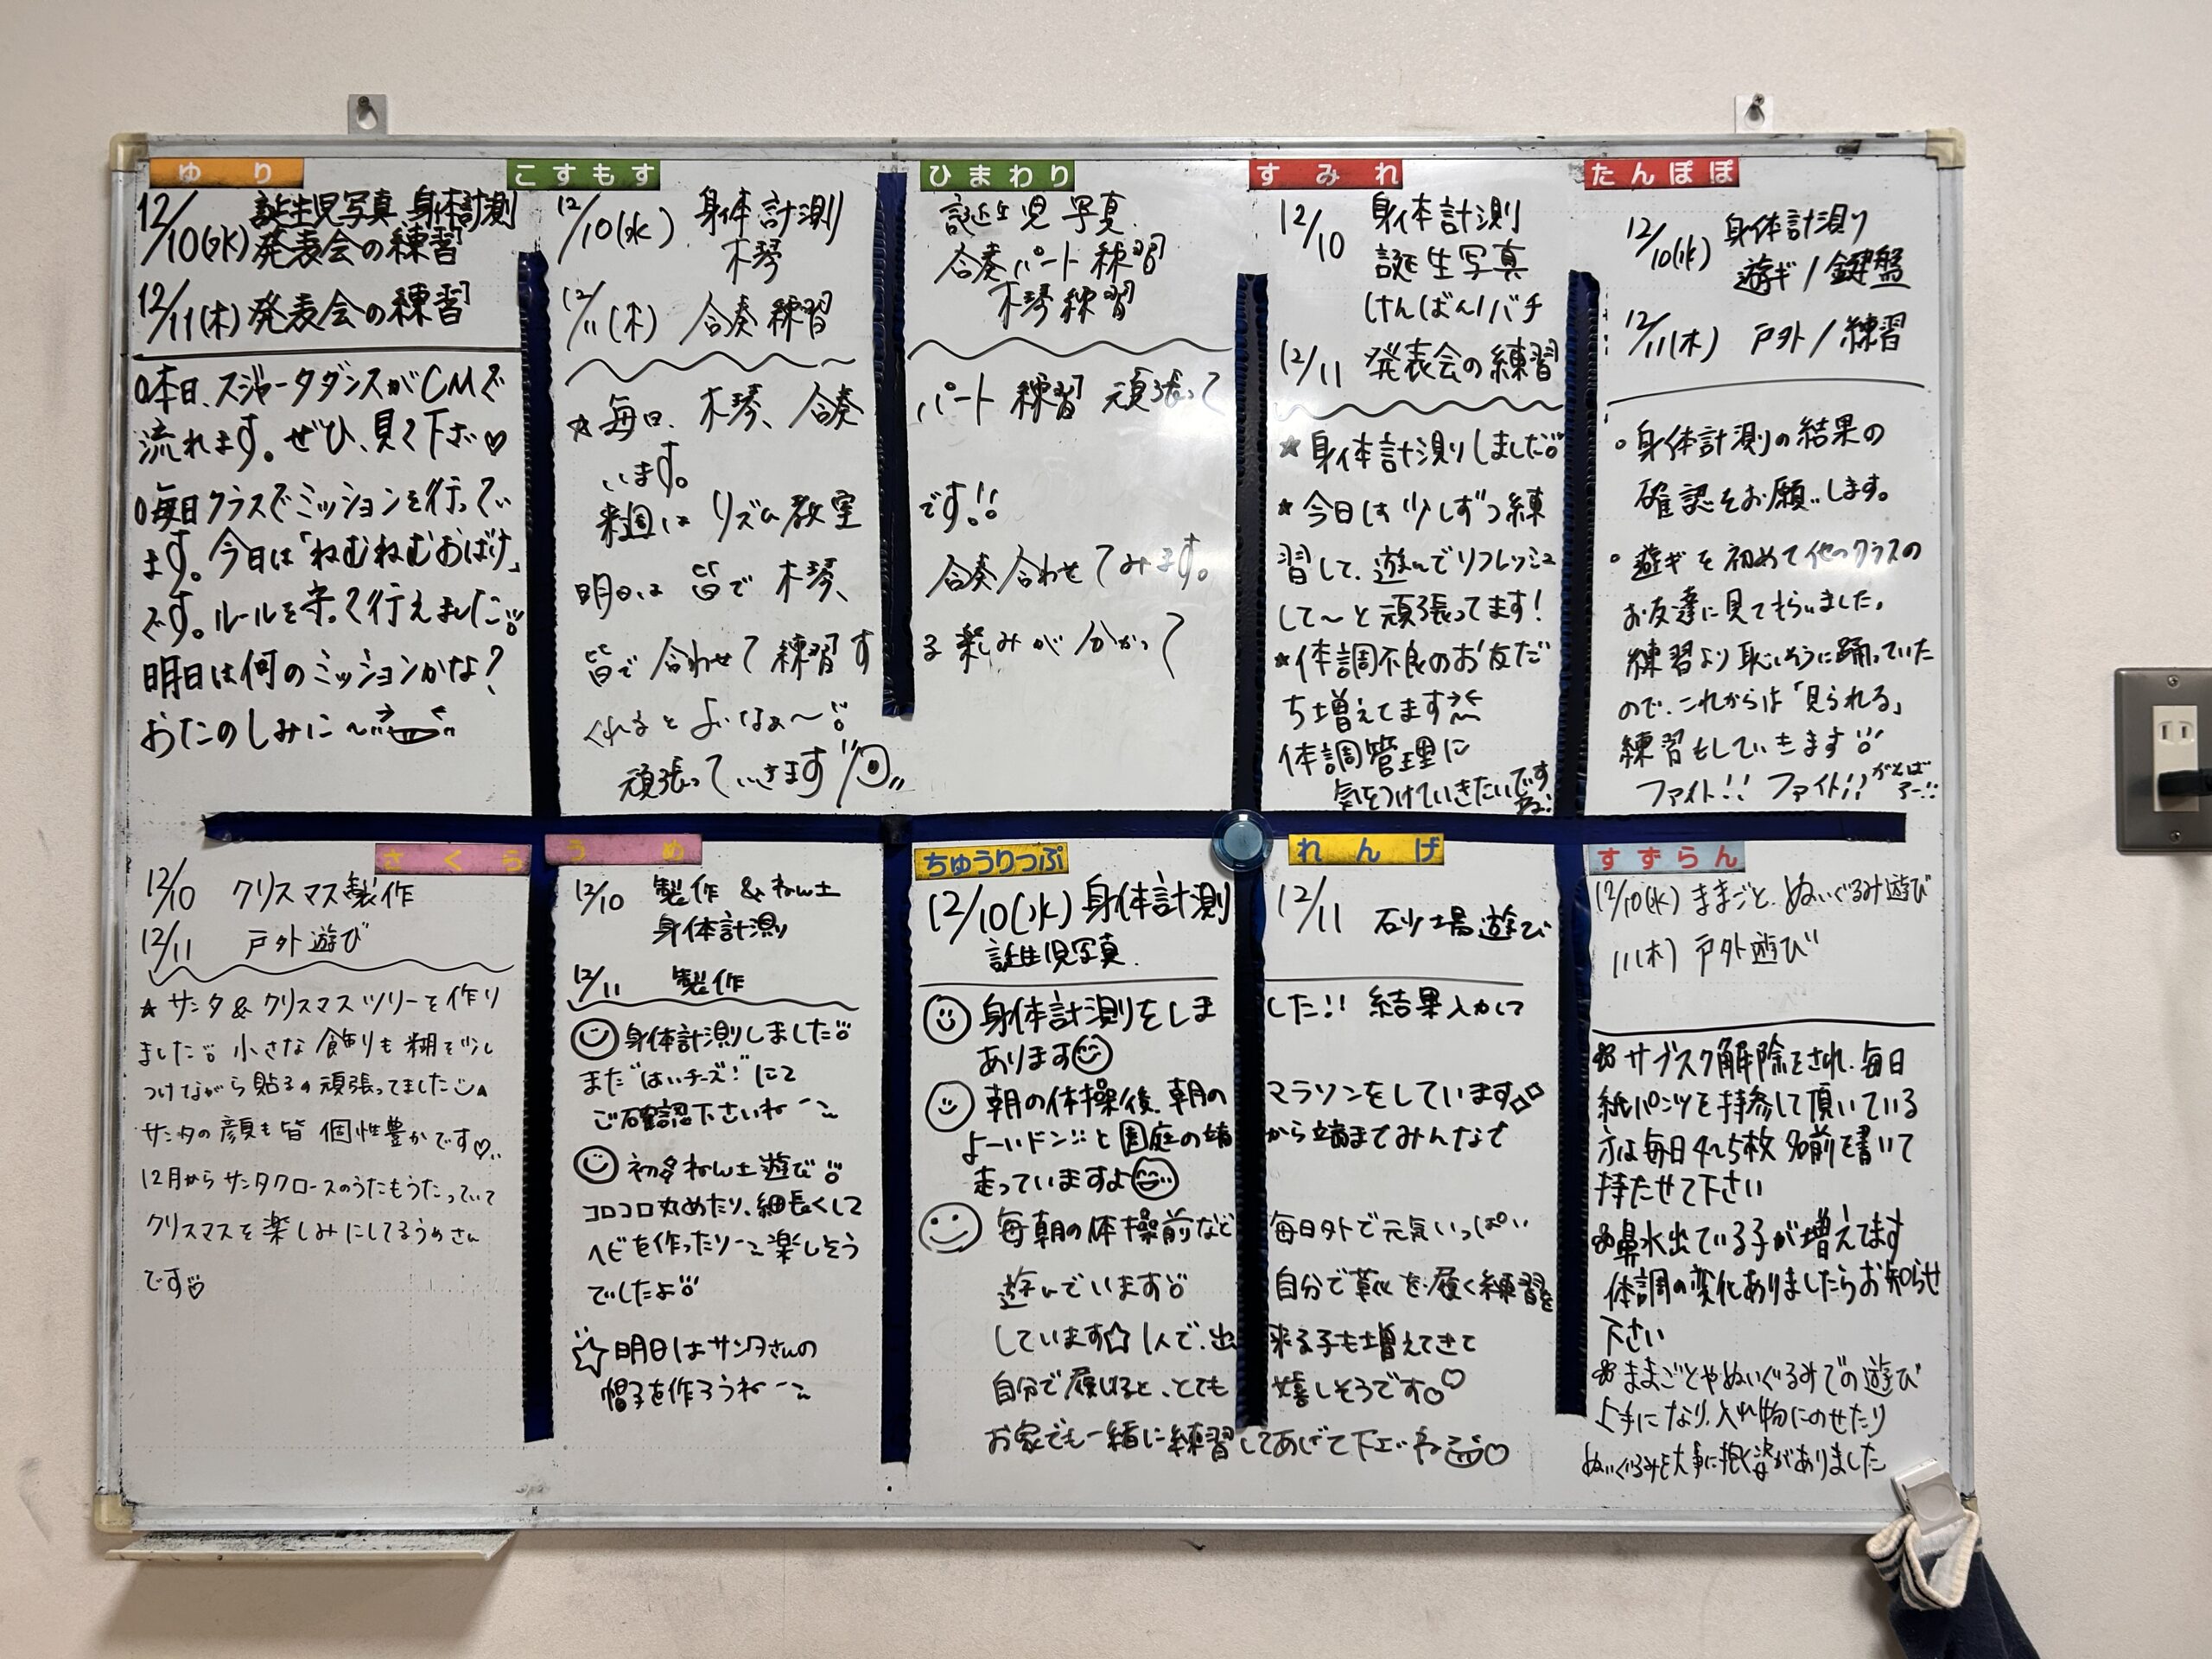 ゆり
12/10(水) 誕生児写真 身体計測
発表会の練習
12/11(木) 発表会の練習
○本日、スジャータダンスがCMで
流れます。ぜひ、見て下さい♡
○毎日クラスでミッションを行ってい
ます。今日は「ねむねむおばけ」
です。ルールを守って行えました
明日は何のミッションかな?
おたのしみに〜
こすもす
12/10(水) 身体計測
木琴
12/11(木) 合奏練習
ひまわり
誕生児写真
合奏パート練習
木琴練習
☆毎日、木琴、合奏パート練習頑張って
います。
来週はリズム教室です!!
明日は皆で木琴、合奏合わせてみます。
皆で合わせて練習する楽しみが分かって
くれるとよいなぁ〜
頑張っていきます
すみれ
12/10 身体計測
誕生写真
けんばん/バチ
12/11 発表会の練習
★身体計測しました
★今日は少しずつ練
習して、遊んでリフレッシュ
して〜と頑張ってます!
★体調不良のお友だ
ち増えてます
体調管理に
気をつけていきたいです
ね
たんぽぽ
12/10(水) 身体計測
遊ギ/鍵盤
12/11(木) 戸外/練習
○身体計測の結果の
確認をお願いします。
○遊ギを初めて他のクラスの
お友達に見てもらいました。
練習より恥しそうに踊っていた
ので、これからは「見られる」
練習もしていきます
ファイト!! ファイト!!
さくら
12/10 クリスマス製作
12/11 戸外遊び
★サンタ&クリスマスツリーを作り
ました 小さな飾りも糊を少し
つけながら貼るの頑張ってました
サンタの顔も皆個性豊かです♡
12月からサンタクロースのうたもうたっていて
クリスマスを楽しみにしてるうめさん
です♡
うめ
12/10 製作&ねん土
身体計測
12/11 製作
身体計測しました
また"はいチーズ!"にて
ご確認下さいねー
初めねん土遊び
コロコロ丸めたり、細長くして
ヘビを作ったりー 楽しそう
でしたよ
☆明日はサンタさんの
帽子を作ろうねー
ちゅうりっぷ
12/10(水) 身体計測
誕生児写真
れんげ
12/11 砂場遊び
身体計測をしました!! 結果入かして
あります
朝の体操後、朝のマラソンをしています
よーいドン!!と園庭の端から端までみんなで
走っていますよ
毎朝の体操前など毎日外で元気いっぱい
遊んでいます 自分で靴を履く練習を
しています☆ 1人で、出来る子も増えてきて
自分で履けると、とても嬉しそうです♡
お家でも一緒に練習してあげて下さいね♡
すずらん
12/10(水) ままごと、ぬいぐるみ遊び
11(木) 戸外遊び
サブスク解除をされ、毎日
紙パンツを持参して頂いている
方は毎日4〜5枚 名前を書いて
持たせて下さい
鼻水出ている子が増えてます
体調の変化ありましたらお知らせ
下さい
ままごとやぬいぐるみでの遊び
上手になり、入れ物にのせたり
ぬいぐるみを大事に抱く姿がありました